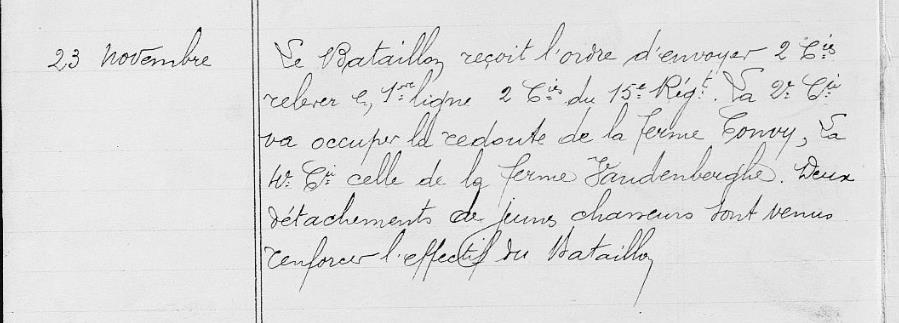 23 Novembre
Le Bataillon reçoit l'ordre d'envoyer 2 Cies
relever en 1ère ligne 2 Cies du 15e Régt. La 2e Cie
va occuper la redoute de la ferme Tonvoy, la
4e Cie celle de la ferme Vandenberghe. Deux
détachements de jeunes chasseurs sont venus
renforcer l'effectif du Bataillon